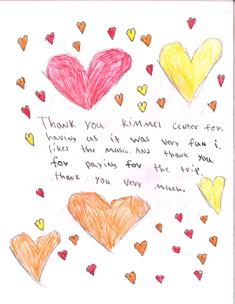 Thank you Kimmel Center for
having us it was very fun i
likes the music. And thank you
for paying for the trip.
thank you very much.